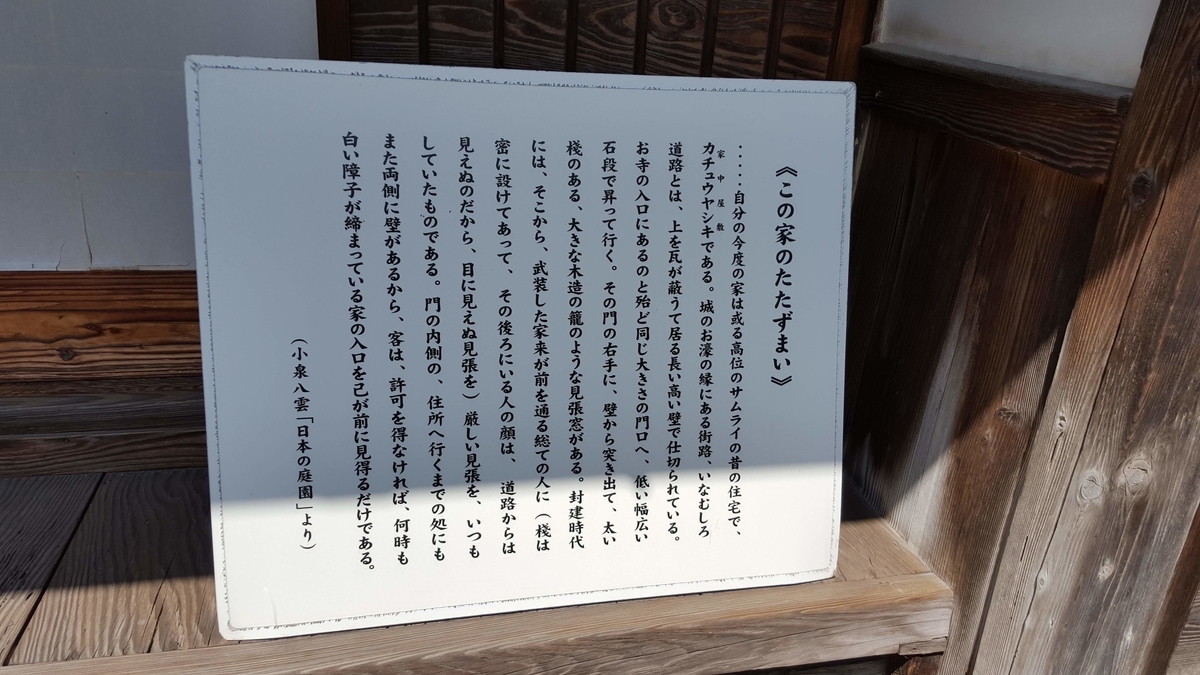 《この家のたたずまい》
・・・・・自分の今度の家は或る高位のサムライの昔の住宅で、
カチュウヤシキである。城のお濠の縁にある街路、いなむしろ
家中屋敷
道路とは、上を瓦が蔽うて居る長い高い壁で仕切られている。
お寺の入口にあるのと殆ど同じ大きさの門口へ、低い幅広い
石段で昇って行く。その門の右手に、壁から突き出て、太い
棧のある、大きな木造の籠のような見張窓がある。封建時代
には、そこから、武装した家来が前を通る総ての人に（棧は
密に設けてあって、その後ろにいる人の顔は、道路からは
見えぬのだから、目に見えぬ見張を）厳しい見張を、いつも
していたものである。門の内側の、住所へ行くまでの処にも
また両側に壁があるから、客は、許可を得なければ、何時も
白い障子が締まっている家の入口を己が前に見得るだけである。
（小泉八雲「日本の庭園」より）